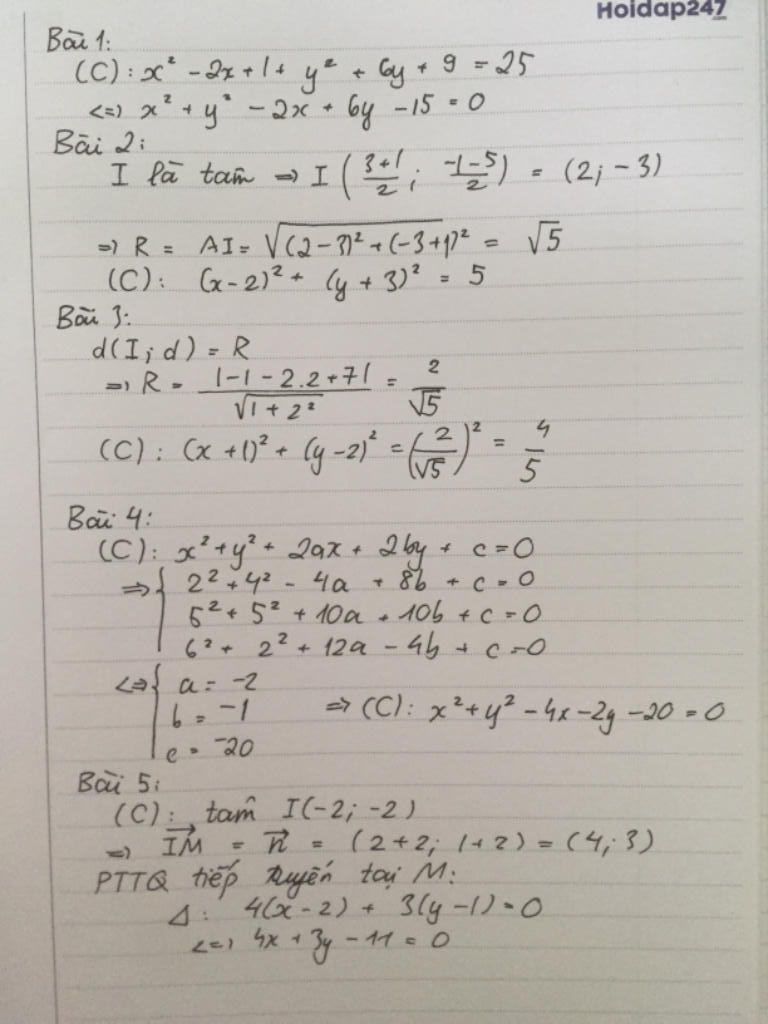 Hoidap247
Bài 1:
(C): x² - 2x + 1 + y² + 6y + 9 = 25
<=> x² + y² - 2x + 6y - 15 = 0
Bài 2:
I là tâm => I ( (3+1)/2 ; (-1-5)/2 ) = (2; -3)
=> R = AI = √((2-3)² + (-3+1)²) = √5
(C): (x-2)² + (y+3)² = 5
Bài 3:
d(I;d) = R
=> R = |-1 - 2.2 + 7| / √(1+2²) = 2/√5
(C): (x+1)² + (y-2)² = (2/√5)² = 4/5
Bài 4:
(C): x² + y² + 2ax + 2by + c = 0
=> { 2² + 4² - 4a + 8b + c = 0
5² + 5² + 10a + 10b + c = 0
6² + 2² + 12a - 4b + c = 0
<=> { a = -2
b = -1 => (C): x² + y² - 4x - 2y - 20 = 0
c = -20
Bài 5:
(C): tâm I(-2; -2)
=> IM→ = n→ = (2+2; 1+2) = (4; 3)
PTTQ tiếp tuyến tại M:
Δ: 4(x-2) + 3(y-1) = 0
<=> 4x + 3y - 11 = 0